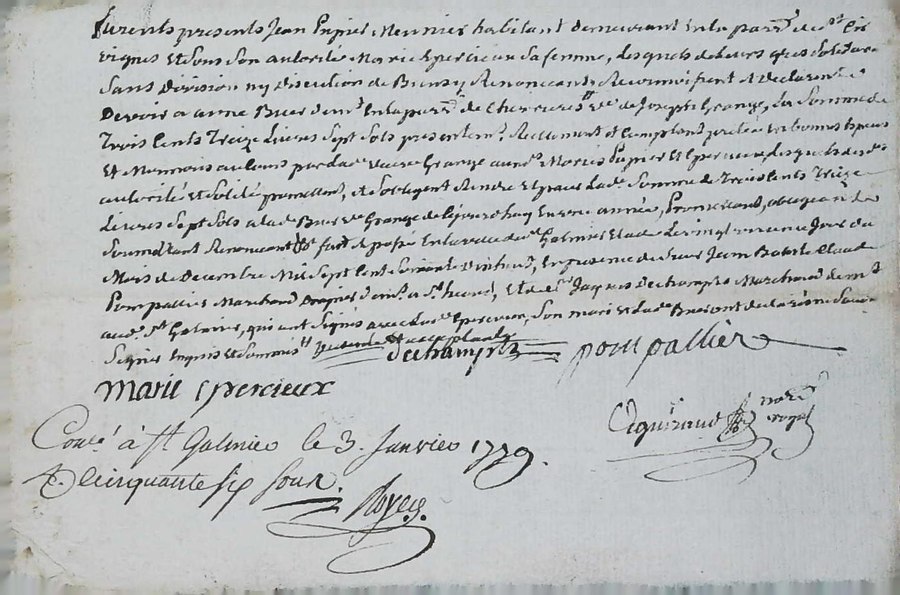 furents presents Jean Papier Meunier habitant demeurant En la parr.e de
Virgnes Et Sous Son autorité Marie Epercieux Sa femme, Lesquels de leurs grés Solidaire
Sans Division ny Discution de Biens y Renoncants Reconnoissent Et Declarent
Devoir a anne Buer dem.t En la parr.e de Chevrieres v.ve de Joseph Grange, La Somme de
Trois Cents Treize Livres Sept Sols presentem.t Reellement et Comptant prêtée En bonnes Especes
Et Monnois au Cours par lad.e veuve Grange auxd.s Mariés Papier Et Epercieux, Lesquels
autorité et Solidité promettent, et S'obligent Rendre Et payer La d.e Somme de Trois Cents Treize
Livres Sept Sols a la d.e Buer v.e Grange de Ce jourd'huy En une année, Promettant, obligeant
Soumettant Renoncant &.a fait Et passé En la ville de S.t Galmier Etude Le vingt neuvieme Jour du
Mois de Decembre Mil Sept Cent Soixante Dix huit, En presence de Sieur Jean Batiste Claude
Pompallier Marchand Drapier dem.t a S.t heand, Et de S.r Jaques Dechamps Marchand dem.t
aud.t S.t Galmier, qui ont Signés avec lad.e Epercieux, Son mari et lad.e Buer ont declaré ne Savoir
Signer Enquis et Sommés
Dechamps pompallier
Marie epercieux
notr.e
royal
Conle. à St. Galmier le 3. Janvier 1779.
R. Cinquante six Sous.
Royer.